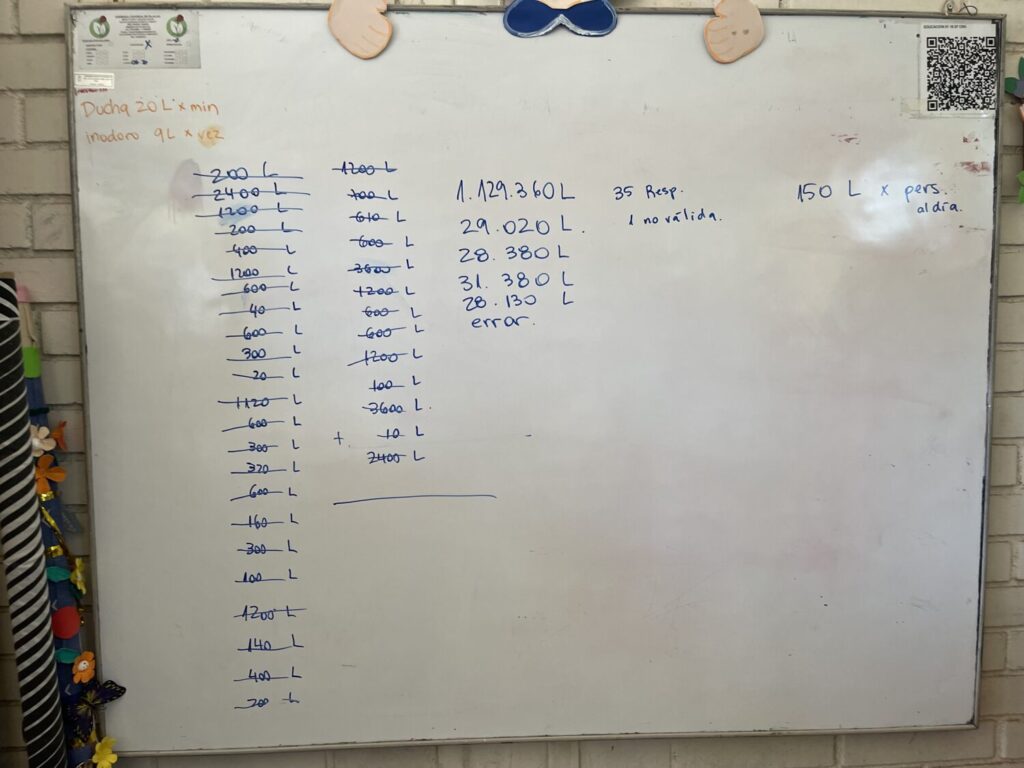 EDUCACIÓN Nº 18 Dº 1391
Ducha 20 L x min
inodoro 9L x vez
200 L
2400 L
1200 L
200 L
400 L
1200 L
600 L
40 L
600 L
300 L
20 L
1120 L
600 L
300 L
320 L
600 L
160 L
300 L
100 L
1200 L
140 L
400 L
200 L
1200 L
100 L
610 L
600 L
3600 L
1200 L
600 L
600 L
1200 L
100 L
3600 L.
+ 10 L
2400 L
1.129.360 L
29.020 L.
28.380 L
31.380 L
28.130 L
error.
35 Resp.
1 no válida.
150 L x pers.
al día.